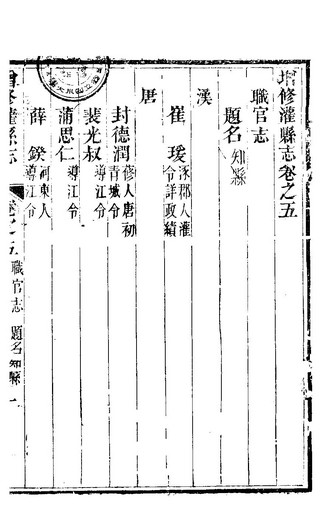 增修灌縣志卷之五
職官志
題名知縣
漢
崔瑗涿郡人灌令詳政績
唐
封德潤蓚人唐初青城令
裴光叔導江令
蒲思仁導江令
薛鍨河東人導江令
增修灌縣志
卷之五職官志
題名知縣
一